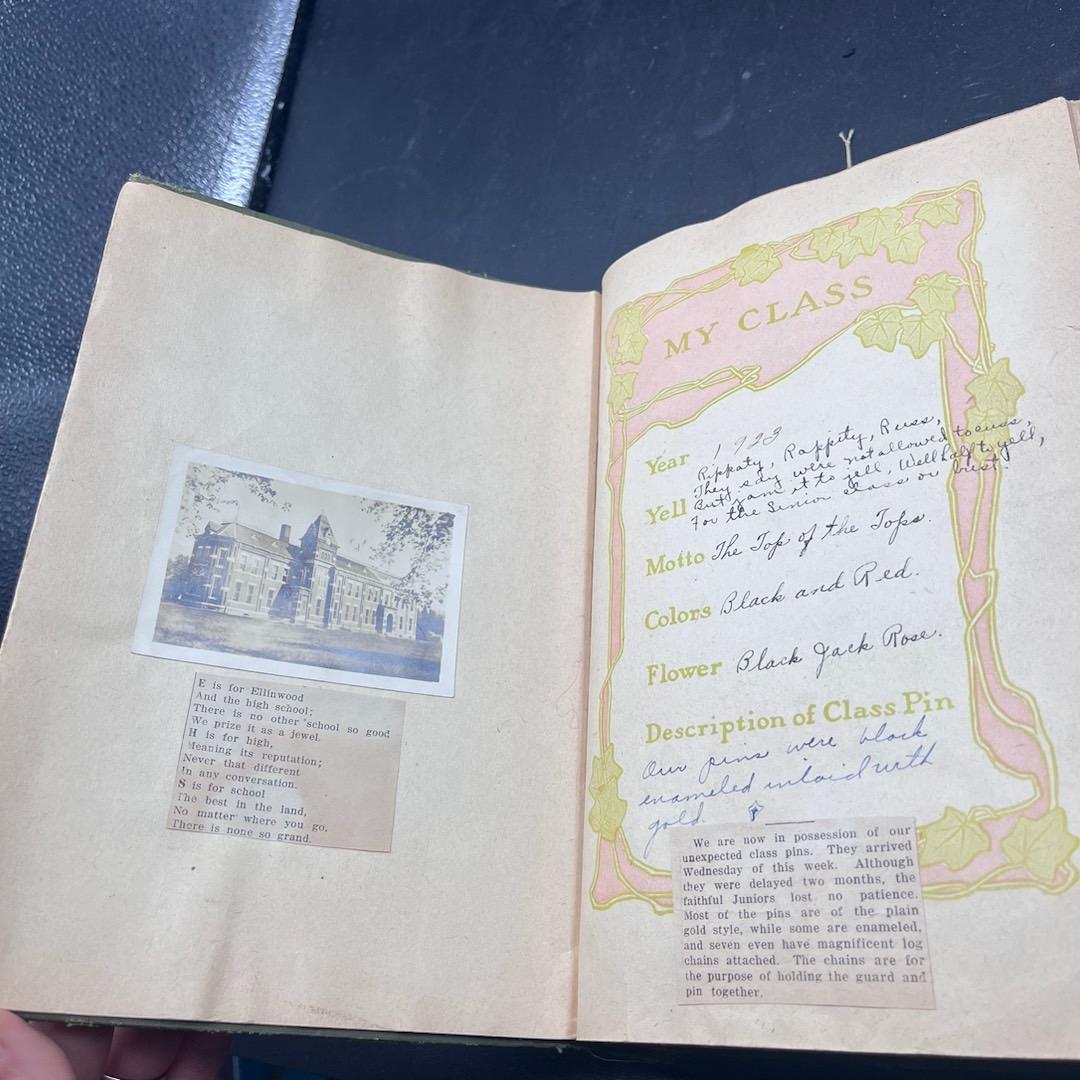 E is for Ellinwood
And the high school;
There is no other school so good
We prize it as a jewel.
H is for high,
Meaning its reputation;
Never that different
In any conversation.
S is for school
The best in the land,
No matter where you go,
There is none so grand.
MY CLASS
Year 1923
Yell Rippaty, Rappity, Russ,
They say were not allowed to cuss,
But jam it to jell, Well half to yell,
For the Senior class or bust.
Motto The Top of the Tops.
Colors Black and Red.
Flower Black Jack Rose.
Description of Class Pin
Our pins were black
enameled inlaid with
gold
We are now in possession of our
unexpected class pins. They arrived
Wednesday of this week. Although
they were delayed two months, the
faithful Juniors lost no patience.
Most of the pins are of the plain
gold style, while some are enameled,
and seven even have magnificent log
chains attached. The chains are for
the purpose of holding the guard and
pin together.